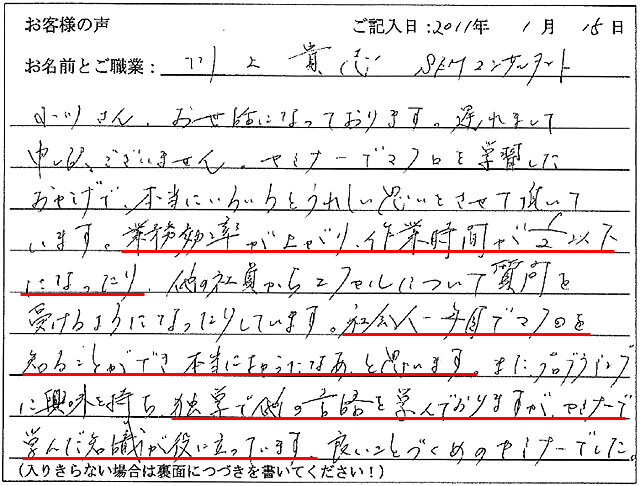 お客様の声 ご記入日:2011年 1月 15日
お名前とご職業: 川上貴志 コンサルタント
小川さん、お世話になっております。遅れまして
申し訳ございません。セミナーでマクロを学習した
おかげで、本当にいろいろとうれしい思いをさせて頂いて
います。業務効率が上がり、作業時間が1/2以下
になったり、他の社員からエクセルについて質問を
受けるようになったりしています。社会人一年目でマクロを
知ることができ本当によかったなあ、と思います。またプログラミング
に興味を持ち、独学で他の言語を学んでおりますが、セミナーで
学んだ知識が役に立っています。良いことづくめのセミナーでした。
(入りきらない場合は裏面につづきを書いてください!)